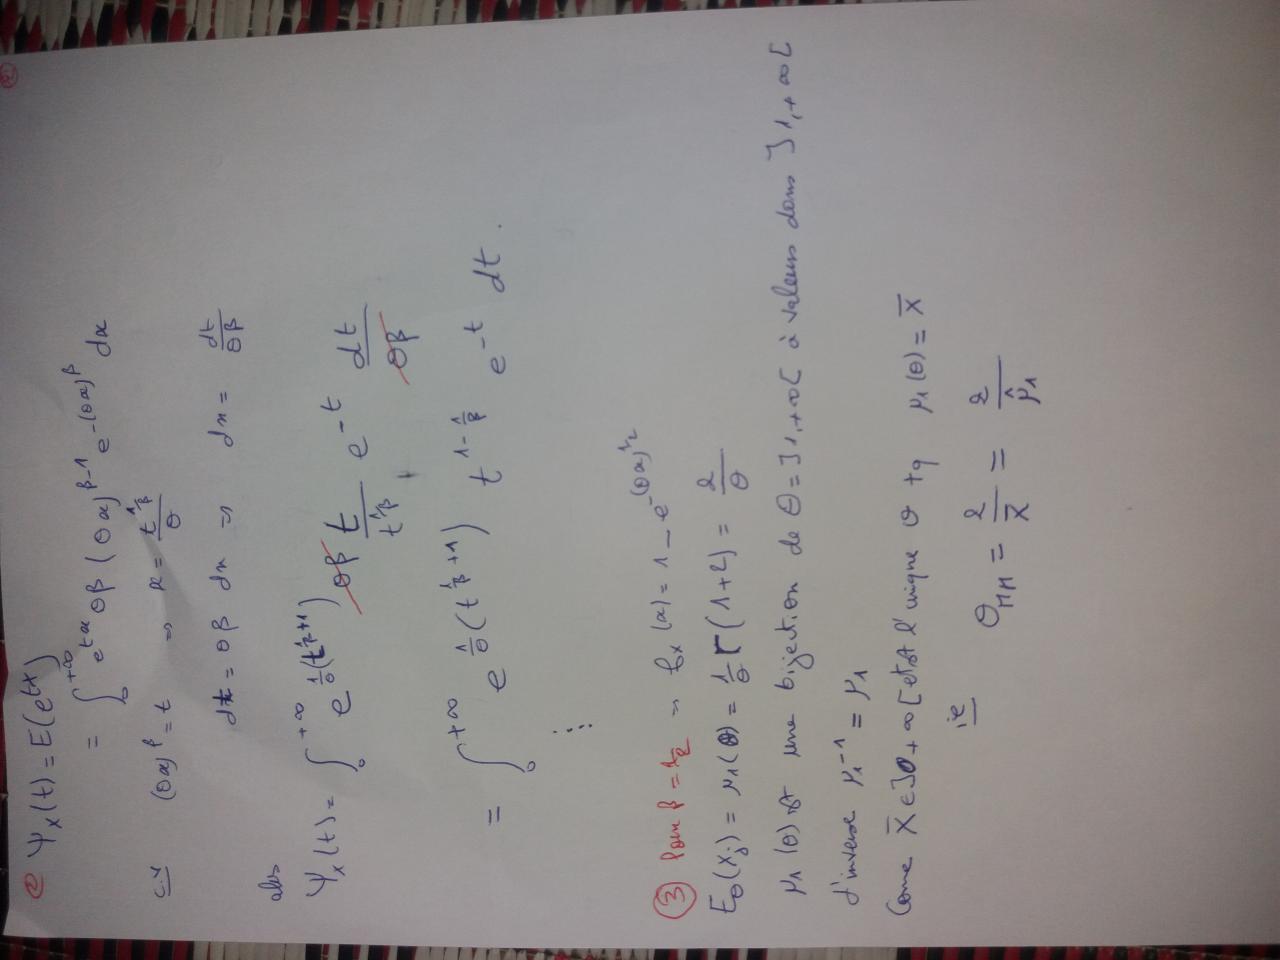 ②
② Ψ_X(t) = E(e^{tX})
= ∫_0^{+∞} e^{tx} θβ (θx)^{β-1} e^{-(θx)^β} dx
c.v (θx)^β = t ⇒ x = t^{1/β}/θ
dt = θβ dx ⇒ dx = dt/θβ
alors
Ψ_X(t) = ∫_0^{+∞} e^{1/θ(t^{1/β}+1)} θβ t/t^{1/β} e^{-t} dt/θβ
= ∫_0^{+∞} e^{1/θ(t^{1/β}+1)} t^{1-1/β} e^{-t} dt.
⋮
③ Pour β = 1/2 → f_X(x) = 1 - e^{-(θx)^{1/2}}
E_θ(X_j) = μ_1(θ) = 1/θ Γ(1+2) = 2/θ
μ_1(θ) est une bijection de Θ = ]1,+∞[ à valeurs dans ]1,+∞[
d'inverse μ_1^{-1} = μ_1
Comme X̄ ∈ ]0,+∞[ et est l'unique θ tq μ_1(θ) = X̄
ie θ_{MM} = 2/X̄ = 2/μ̂_1